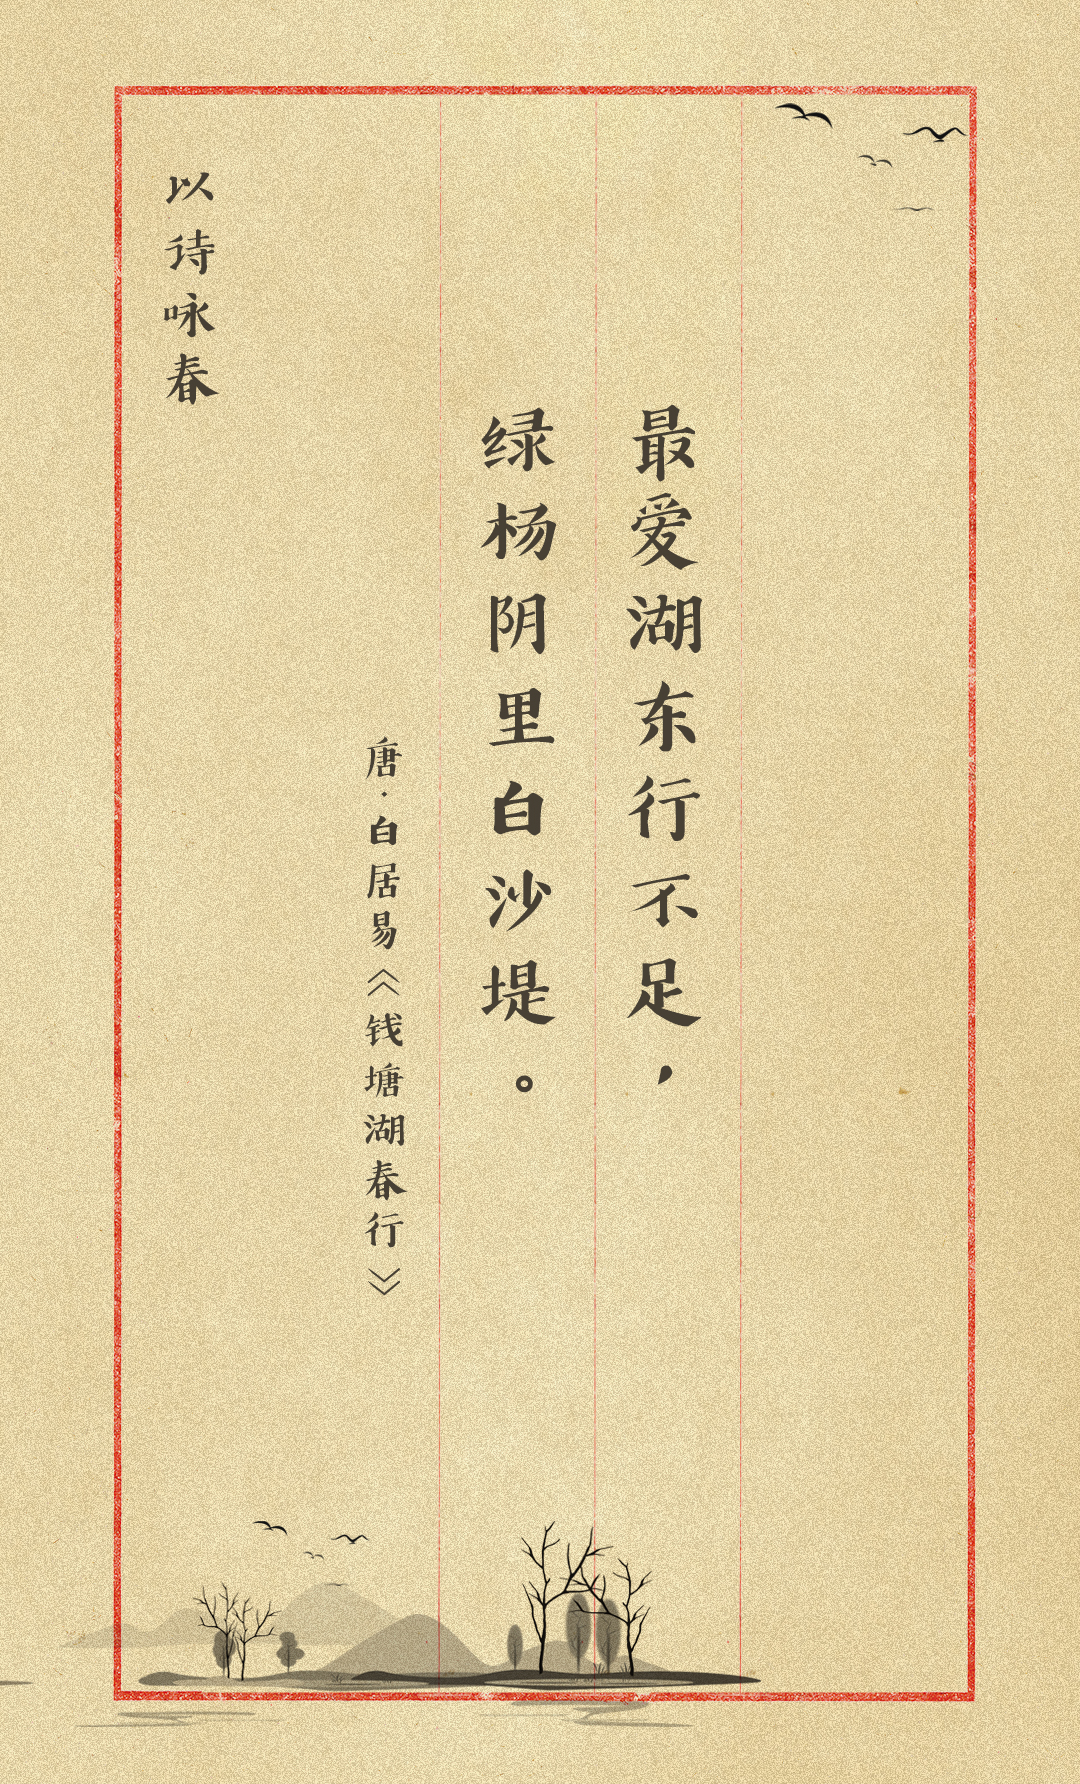 最爱湖东行不足，
绿杨阴里白沙堤。
唐·白居易《钱塘湖春行》
以诗咏春